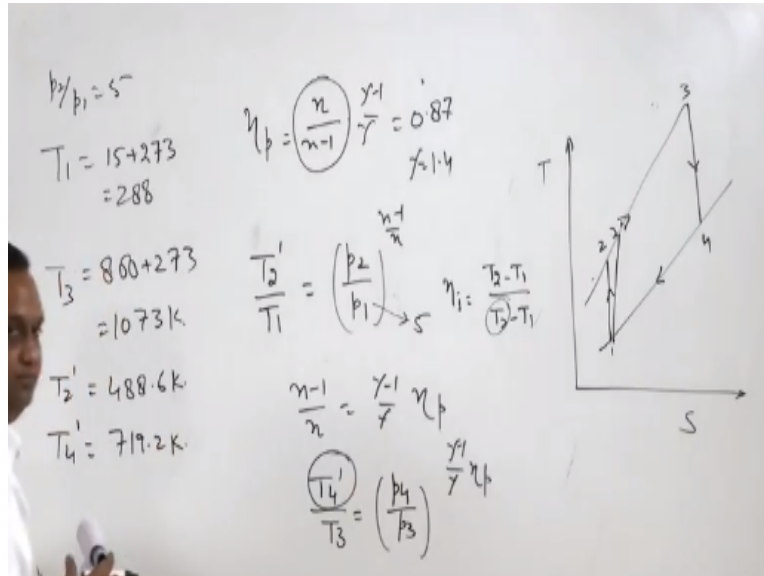 p₂/p₁ = 5
T₁ = 15+273
= 288
T₃ = 800+273
= 1073K
T₂' = 488.6K.
T₄' = 719.2K.
ηp = n/n-1 γ-1/γ = 0.87
γ=1.4
T₂'/T₁ = (p₂/p₁)^n-1/n → 5
ηi = T₂-T₁/T₂'-T₁
n-1/n = γ-1/γ ηp
T₄'/T₃ = (p₄/p₃)^γ-1/γ ηp
T
3
2
2'
4
1
S